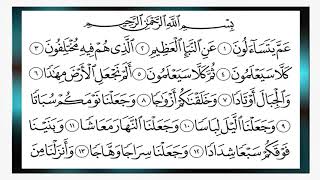 بِسْمِ ٱللَّهِ ٱلرَّحْمَٰنِ ٱلرَّحِيمِ
عَمَّ يَتَسَآءَلُونَ ١ عَنِ ٱلنَّبَإِ ٱلْعَظِيمِ ٢ ٱلَّذِى هُمْ فِيهِ مُخْتَلِفُونَ ٣
كَلَّا سَيَعْلَمُونَ ٤ ثُمَّ كَلَّا سَيَعْلَمُونَ ٥ أَلَمْ نَجْعَلِ ٱلْأَرْضَ مِهَٰدًا ٦
وَٱلْجِبَالَ أَوْتَادًا ٧ وَخَلَقْنَٰكُمْ أَزْوَٰجًا ٨ وَجَعَلْنَا نَوْمَكُمْ سُبَاتًا
٩ وَجَعَلْنَا ٱلَّيْلَ لِبَاسًا ١٠ وَجَعَلْنَا ٱلنَّهَارَ مَعَاشًا ١١ وَبَنَيْنَا
فَوْقَكُمْ سَبْعًا شِدَادًا ١٢ وَجَعَلْنَا سِرَاجًا وَهَّاجًا ١٣ وَأَنزَلْنَا مِنَ